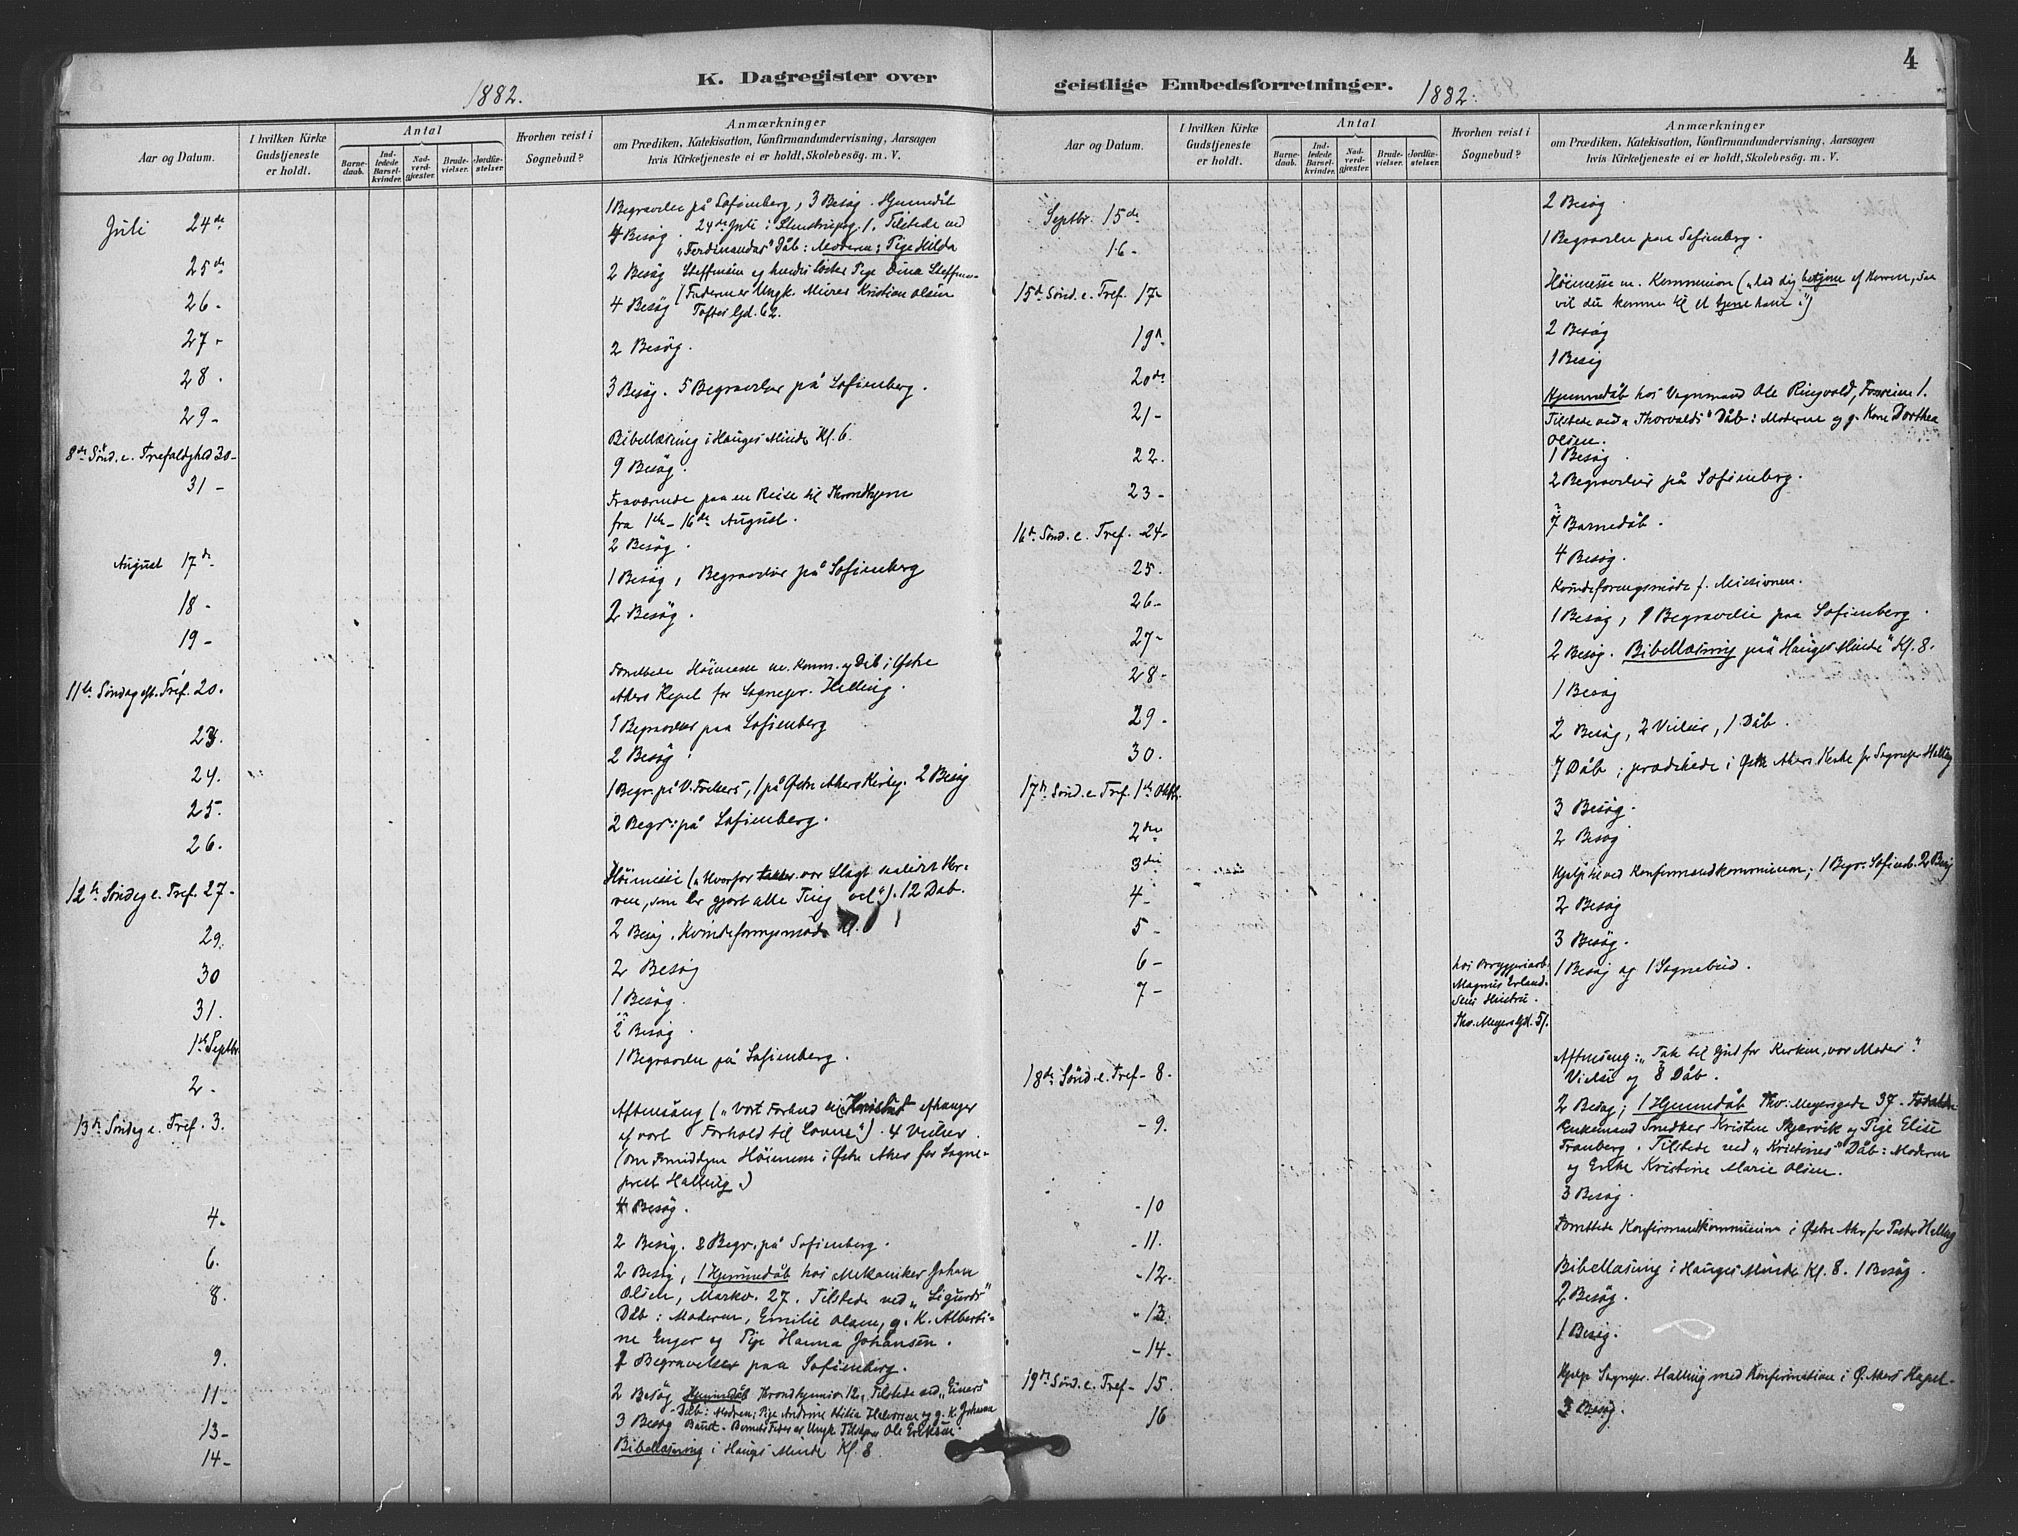 4
K. Dagregister over
geistlige Embedsforretninger.
1882.
1882.
Aar og Datum.
I hvilken Kirke Gudstjeneste er holdt.
Antal
Barnedaab.
Indledede Barselkvinder.
Nadverdgjæster.
Brudevielser.
Jordfæstelser
Hvorhen reist i Sognebud?
Anmærkninger
om Prædiken, Katekisation, Konfirmandundervisning, Aarsagen
hvis Kirketjeneste ei er holdt, Skolebesög. m. V.
Juli 24de
1 Begravelse på Sofienberg, 3 Besøg. Hjemmedåb
4 Besøg. 24de Juli i 1. Tilstede ved
"Ferdinandas" Dåb: Moderen: Pige Hilda
25de
2 Besøg Steffensen og hendes Søster Pige Dina Steffens-
26-
4 Besøg (Faderen er Ungk. Murer Kristian Olsen
Toftes Gd. 62.
27-
2 Besøg.
28.
3 Besøg. 5 Begravelser på Sofienberg.
29-
Bibellæsning i Hauges Minde Kl. 6.
8de Sønd. e. Trefoldighed 30-
9 Besøg.
31-
Fraværende paa en Reise til Throndhjem
fra 1ste-16de August.
August 17de
2 Besøg.
18-
1 Besøg, Begravelser på Sofienberg
19-
2 Besøg.
11te Søndag eft. Tref. 20.
Forrettede Høimesse m. Komm. og Dåb i Østre
Akers Kapel for Sognepr. Halling.
23.
1 Begravelse paa Sofienberg
24.
2 Besøg.
25.
1 Begr. på V. Frelsers, 1 på Østre Akers Kirkeg. 2 Besøg
26.
2 Begr: på Sofienberg.
12te Søndag e. Tref. 27-
Høimesse ("Hvorfor vor Slagt Her-
ren, som har gjort alle Ting vel"). 12 Dåb.
29.
2 Besøg. Kvindeforeningsmøde Kl. 6
30
2 Besøg
31.
1 Besøg.
1ste Septbr.
2 Besøg.
2-
1 Begravelse på Sofienberg.
13de Søndag e. Tref. 3.
Aftensang ("Vort Forhold til Kristus afhænger
af vort Forhold til Loven"). 4 Vielser.
(Om Formiddagen Høimesse i Østre Aker for Sogne-
prest Halling)
4-
4 Besøg.
6.
2 Besøg. 8 Begr. på Sofienberg.
8.
2 Besøg, 1 Hjemmedåb hos Mekaniker Johan
Olsen, Markv. 27. Tilstede ved "Sigurds"
Dåb: Moderen, Emilie Olsen, g. K. Alberti-
ne Enger og Pige Hanna Johansen.
9.
2 Begravelser paa Sofienberg.
11-
2 Besøg Hjemmedåb Throndhjemsv. 12, Tilstede ved "Einars"
Dåb: Moderen: Pige Andrine Halvorsen og g. K. Johanna
13-
3 Besøg Barnets Fader er Ungk. Ole Eriksen.
14-
Bibellæsning i Hauges Minde Kl. 8.
Aar og Datum.
I hvilken Kirke Gudstjeneste er holdt.
Antal
Barnedaab.
Indledede Barselkvinder.
Nadverdgjæster.
Brudevielser.
Jordfæstelser.
Hvorhen reist i Sognebud?
Anmærkninger
om Prædiken, Katekisation, Konfirmandundervisning, Aarsagen
hvis Kirketjeneste ei er holdt, Skolebesög. m. V.
Septbr. 15de
2 Besøg
16-
1 Begravelse paa Sofienberg.
15de Sønd. e. Tref. 17-
Høimesse m. Kommunion ("Lad dig betjene af Herren, saa
vil du komme til at tjene ham.")
19de
2 Besøg
20de
1 Besøg
21-
Hjemmedåb hos Vognmand Ole Ringvold, 1.
Tilstede ved "Thorvalds" Dåb: Moderen og g. Kone Dorthea
Olsen.
22.
1 Besøg.
23-
2 Begravelser på Sofienberg.
16de Sønd. e. Tref. 24-
7 Barnedåb.
25.
4 Besøg.
26-
Kvindeforeningsmøde f. Missionen.
27-
1 Besøg, 1 Begravelse paa Sofienberg.
28-
2 Besøg. Bibellæsning på "Hauges Minde" Kl. 8.
29.
1 Besøg
30.
2 Besøg, 2 Vielser, 1 Dåb.
17de Sønd. e. Tref. 1ste Oktbr.
7 Dåb; prædikede i Østre Akers Kirke for Sognepr. Halling
2den
3 Besøg.
3die
2 Besøg
4-
Hjalp til ved Konfirmandkommunion; 1 Begr. Sofienb. 2 Besøg
5-
2 Besøg
6-
3 Besøg.
7-
hos Bryggeriarb.
Magnus Erland-
sens Hustru.
Thv. Meyers Gd. 51.
1 Besøg og 1 Sognebud.
18de Sønd. e. Tref- 8.
Aftensang: "Tak til Gud for Kirken, vor Moder".
Vielse og 8 Dåb.
-9.
2 Besøg; 1 Hjemmedåb Thv. Meyersgade 37. Forældre
Enkemand Snedker Kristen Skjervik og Pige Elise
Framberg. Tilstede ved "Kristines" Dåb: Moderen
og Enke Kristine Marie Olsen.
-10
3 Besøg.
-11.
Forrettede Konfirmandkommunion i Østre Aker for Pastor Halling
-12.
Bibellæsning i Hauges Minde Kl. 8. 1 Besøg.
-13.
2 Besøg.
-14.
1 Besøg.
19de Sønd. e. Tref- 15.
Hjalp Sognepr. Halling med Konfirmation i Ø. Akers Kapel-
16
3 Besøg.